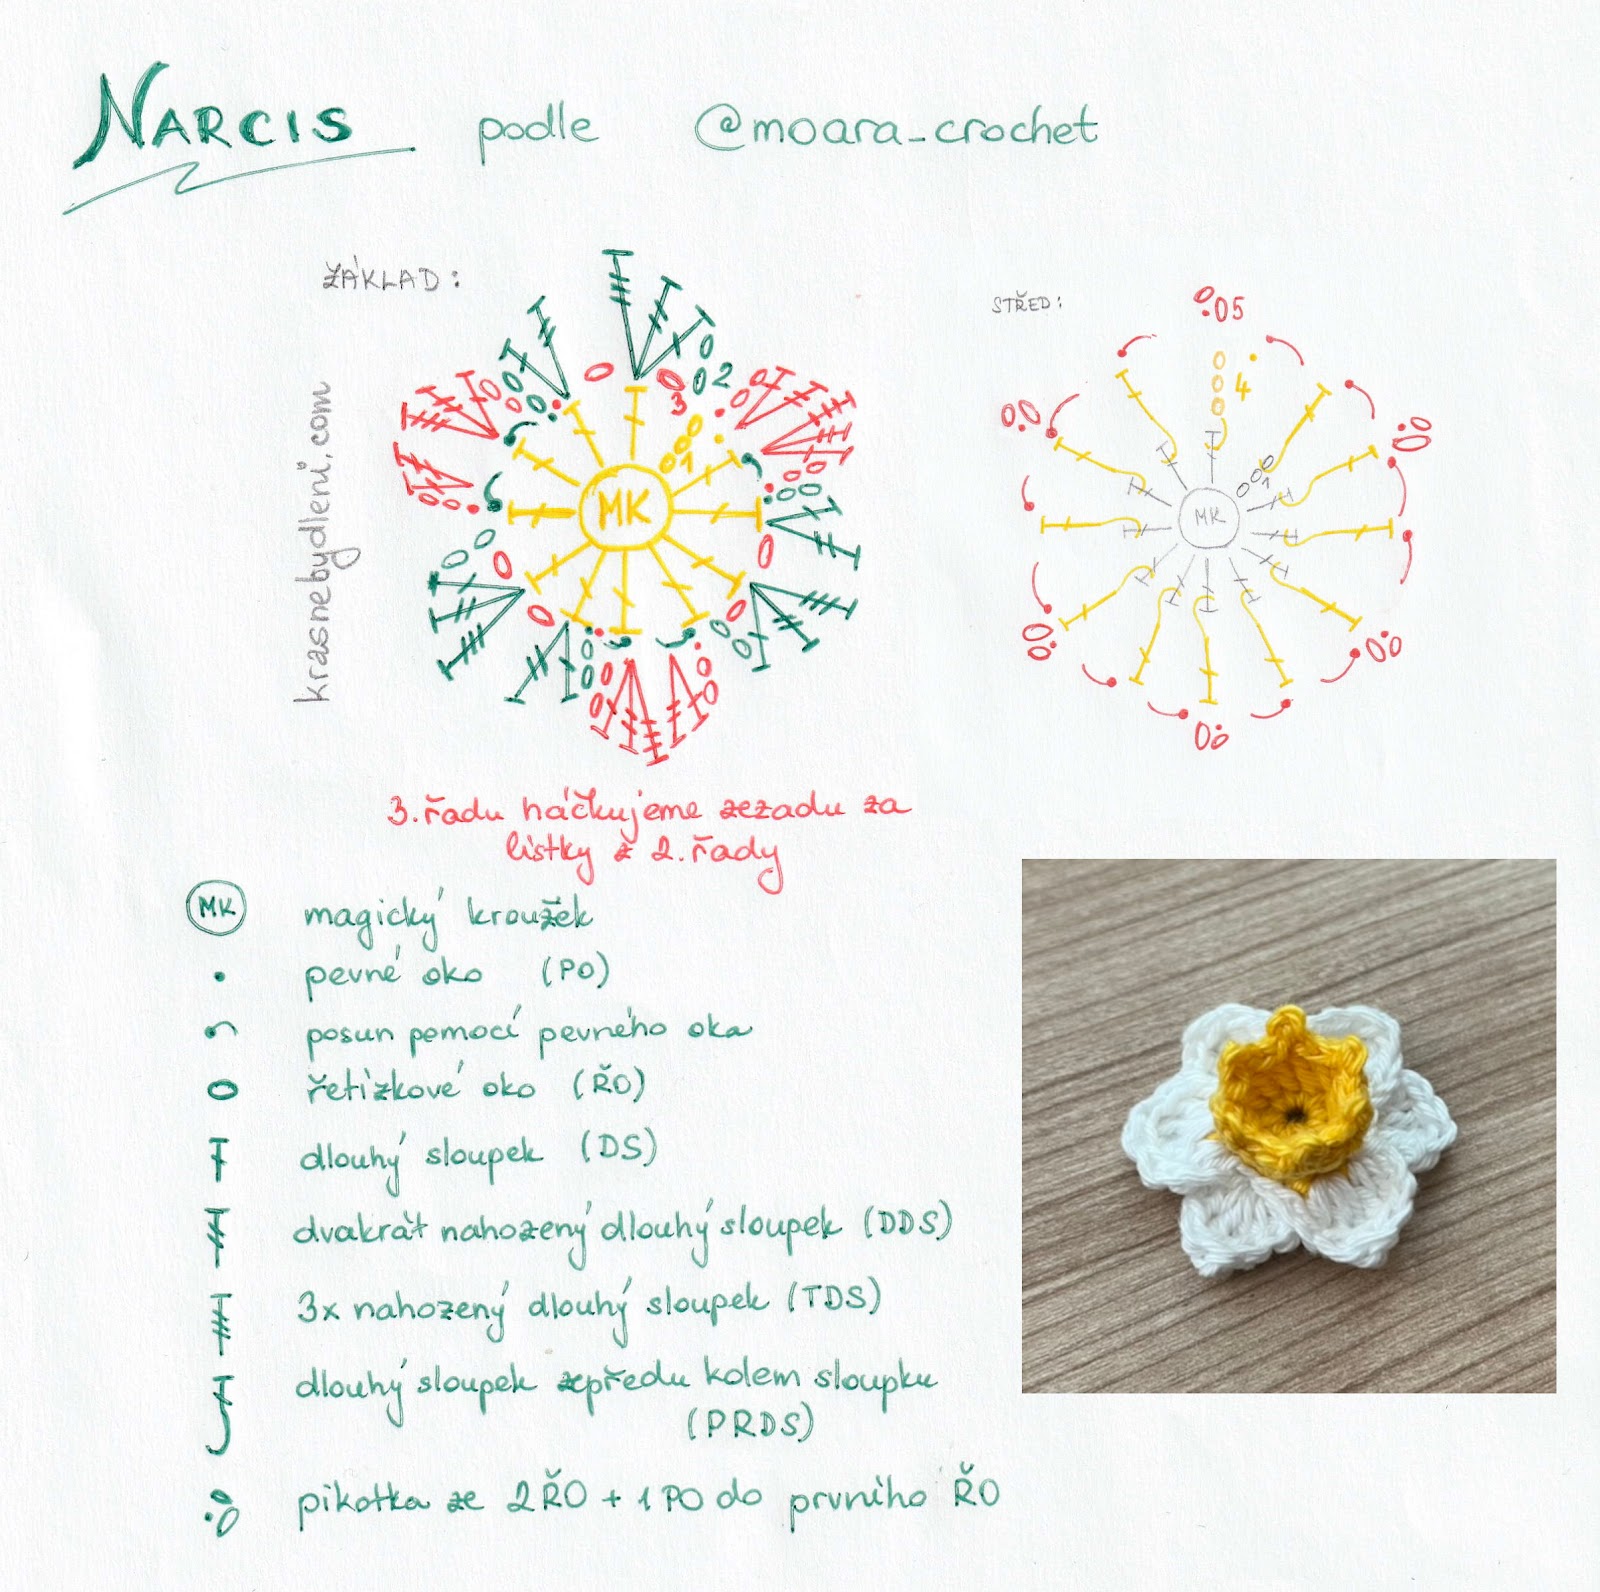 NARCIS podle @moara_crochet
ZÁKLAD:
STŘED:
krasnebydleni.com
MK
1
2
3
MK
1
4
5
3. řadu háčkujeme zezadu za
lístky z 2. řady
MK magický kroužek
pevné oko (PO)
posun pomocí pevného oka
řetízkové oko (ŘO)
dlouhý sloupek (DS)
dvakrát nahozený dlouhý sloupek (DDS)
3x nahozený dlouhý sloupek (TDS)
dlouhý sloupek zepředu kolem sloupku
(PRDS)
pikotka ze 2ŘO + 1PO do prvního ŘO